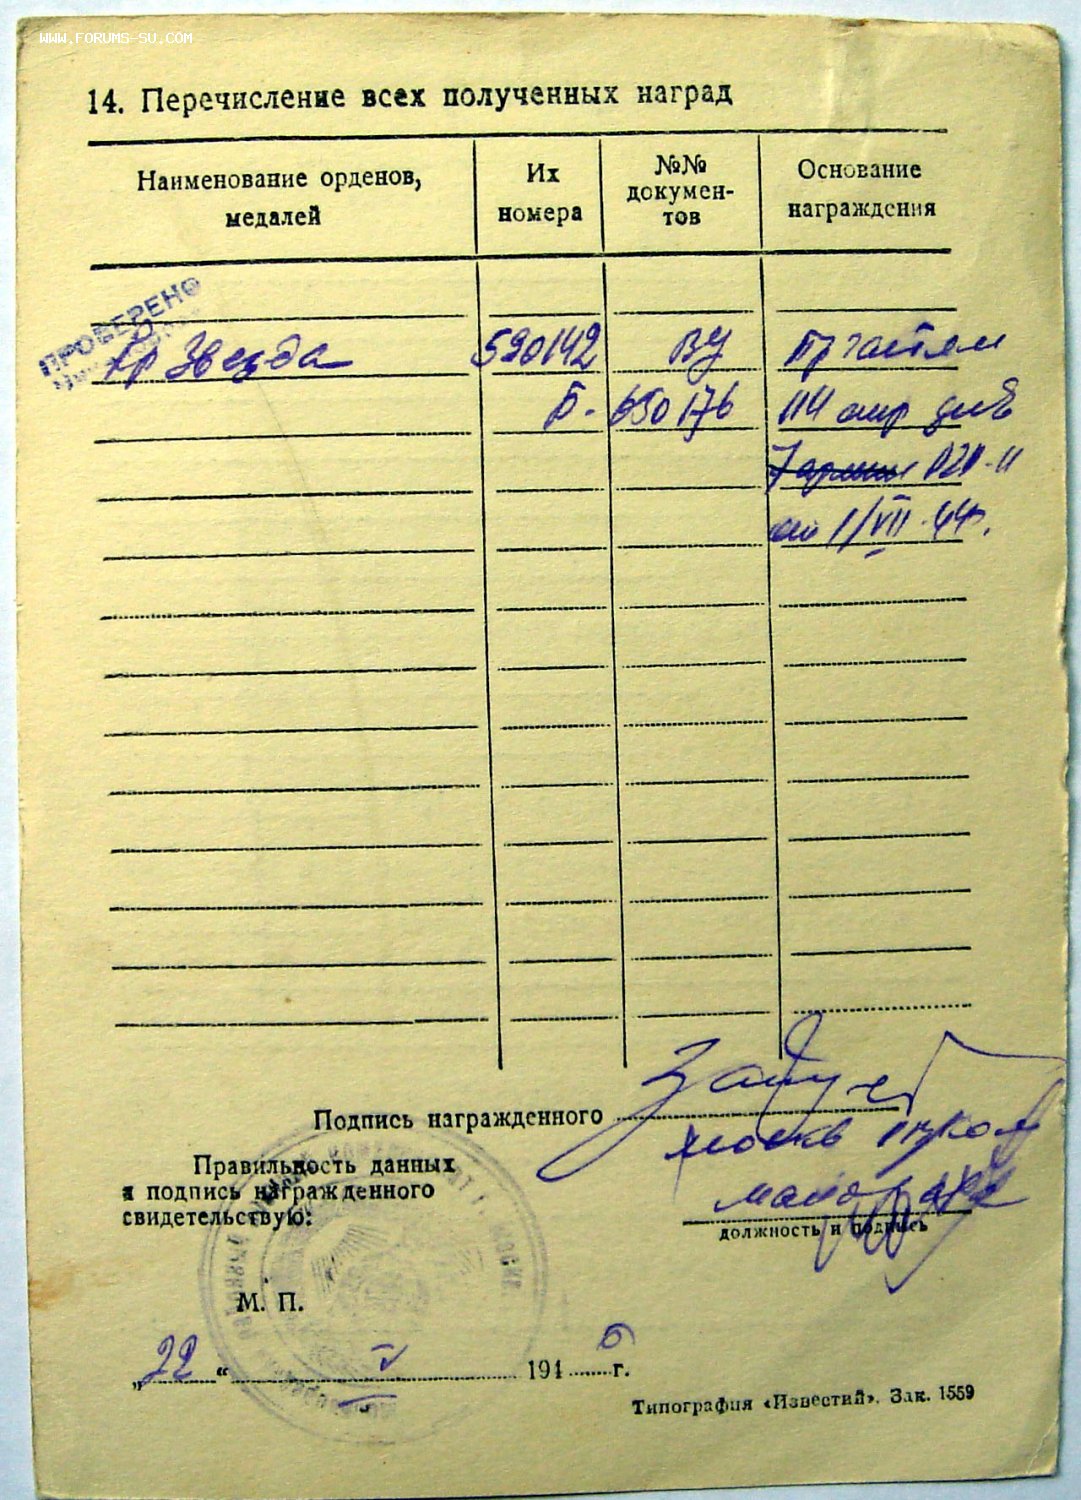 WWW.FORUMS-SU.COM
14. Перечисление всех полученных наград
Наименование орденов, медалей
Их номера
№№ докумен-тов
Основание награждения
ПРОВЕРЕНО
Кр Звезда 590142 ВУ Пр частям
Б- 650176 114 стр див
7 армии 020-н
от 1/VII-44г.
Подпись награжденного
Москв
майор адм
Правильность данных
и подпись награжденного
свидетельствую:
должность и подпись
М. П.
„22“ V 1946 г.
Типография «Известий». Зак. 1559